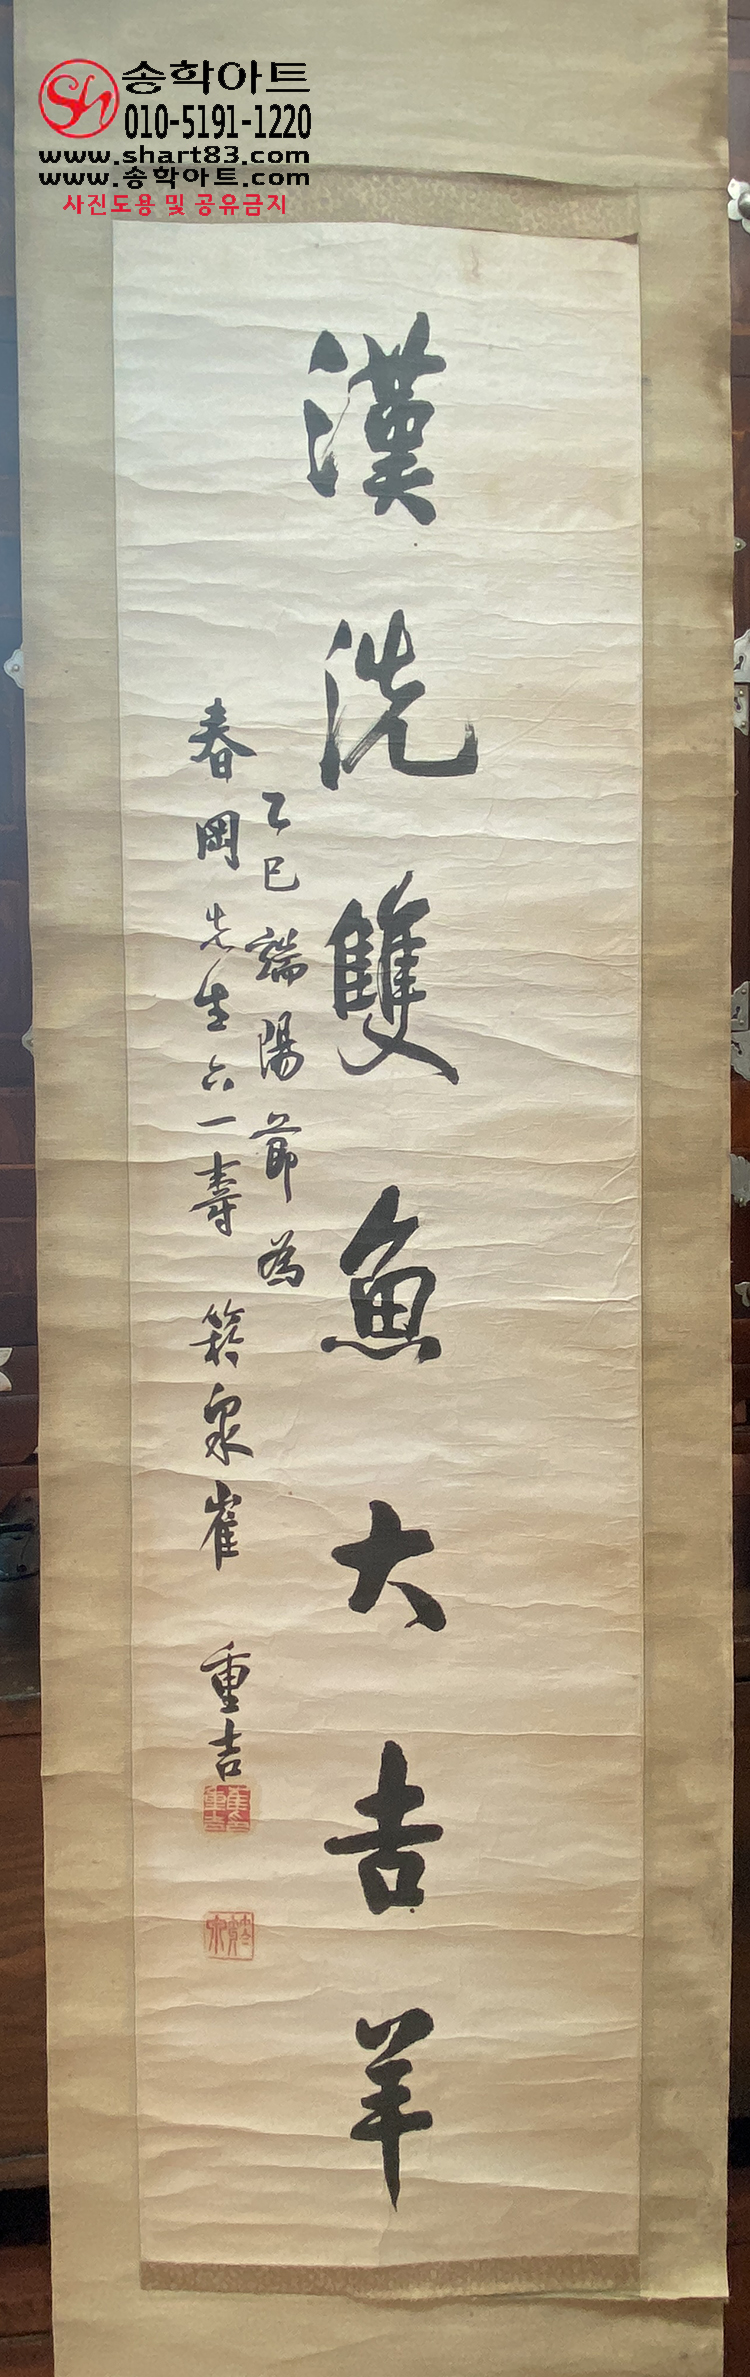 송학아트
010-5191-1220
www.shart83.com
www.송학아트.com
사진도용 및 공유금지
漢洗雙魚大吉羊
乙巳端陽節為
春岡先生六一壽 泉崔重吉